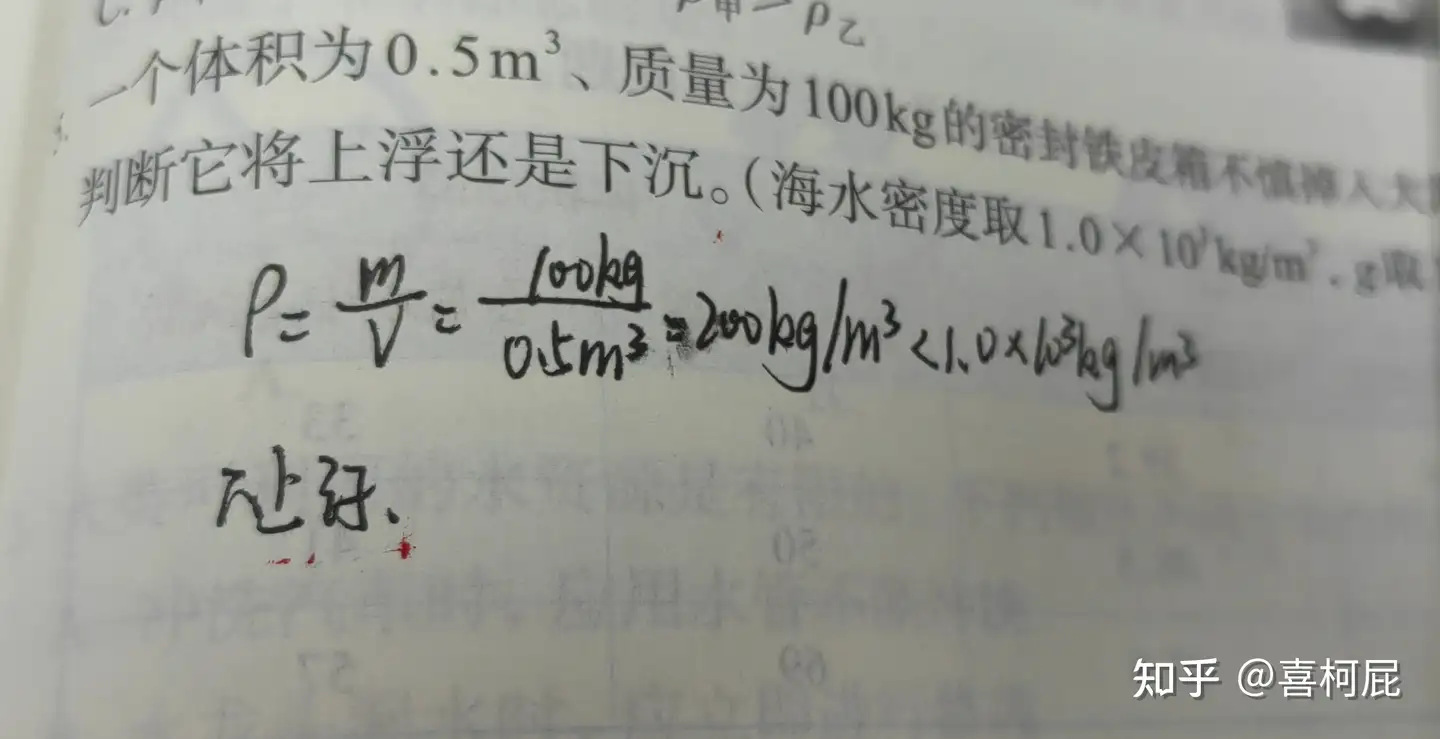 ρ乙
一个体积为0.5m³、质量为100kg的密封铁皮箱不慎掉入大
判断它将上浮还是下沉。(海水密度取1.0×10³kg/m³,g取
ρ=m/V=100kg/0.5m³=200kg/m³<1.0×10³kg/m³
上浮.
知乎 @喜柯屁